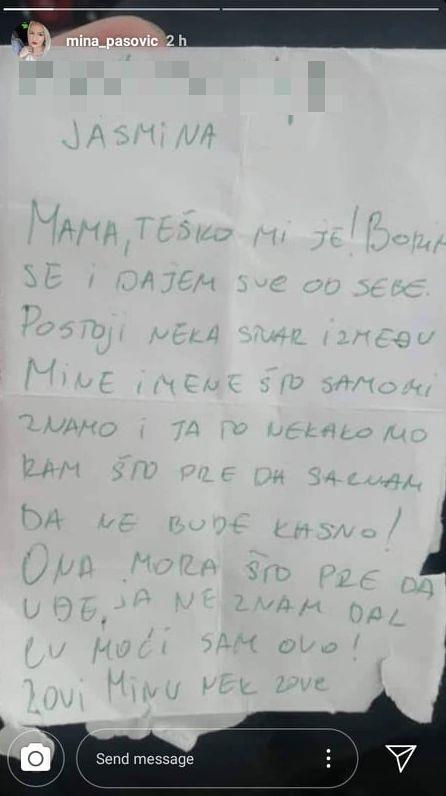 mina_pasovic 2 h
JASMINA
MAMA, TEŠKO MI JE! BORIM
SE I DAJEM SVE OD SEBE.
POSTOJI NEKA STVAR IZMEĐU
MINE I MENE ŠTO SAMO MI
ZNAMO I JA TO NEKAKO MO
RAM ŠTO PRE DA SAZNAM
DA NE BUDE KASNO!
ONA MORA ŠTO PRE DA
UĐE, JA NE ZNAM DAL
ĆU MOĆI SAM OVO!
ZOVI MINU NEK ZOVE
Send message